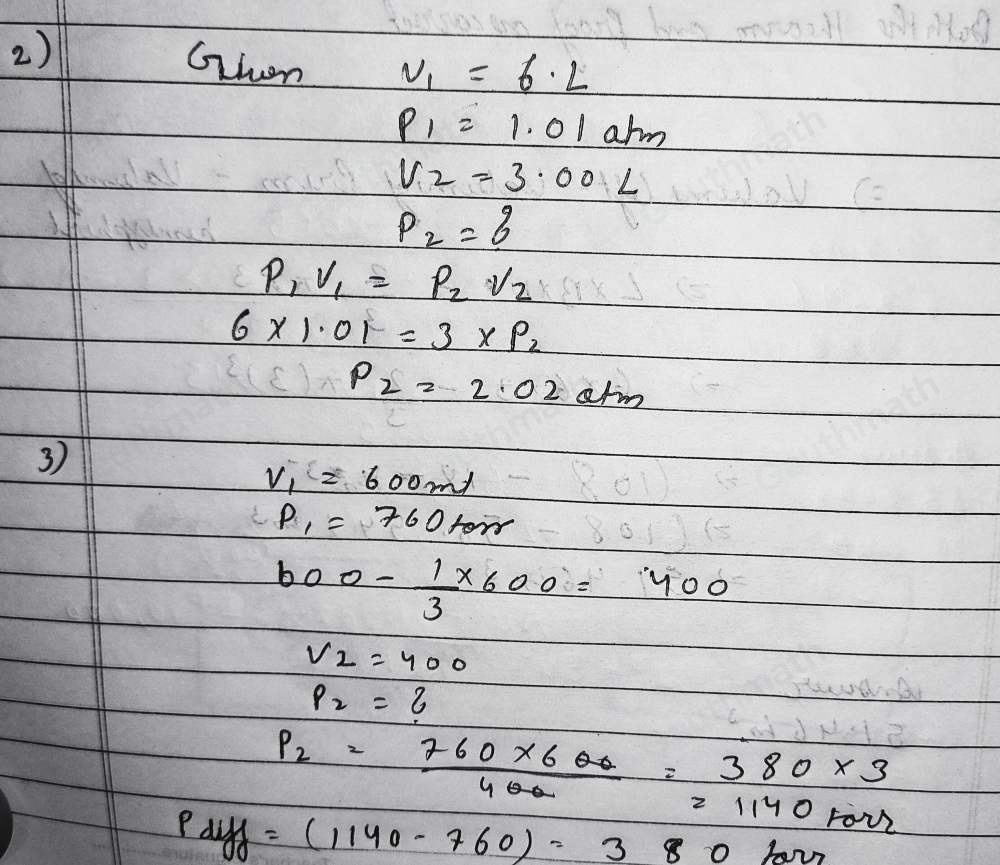 2) Given V₁ = 6.L
P1 = 1.01 atm
V2 = 3.00 L
P2 = ?
P₁ V₁ = P2 V2
6 × 1.01 = 3 × P2
P2 = 2.02 atm
3) V₁ = 600ml
P₁ = 760 torr
600 - 1/3 × 600 = 400
V2 = 400
P2 = ?
P2 = 760 × 600 / 400 = 380 × 3
= 1140 torr
P diff = (1140 - 760) = 380 torr